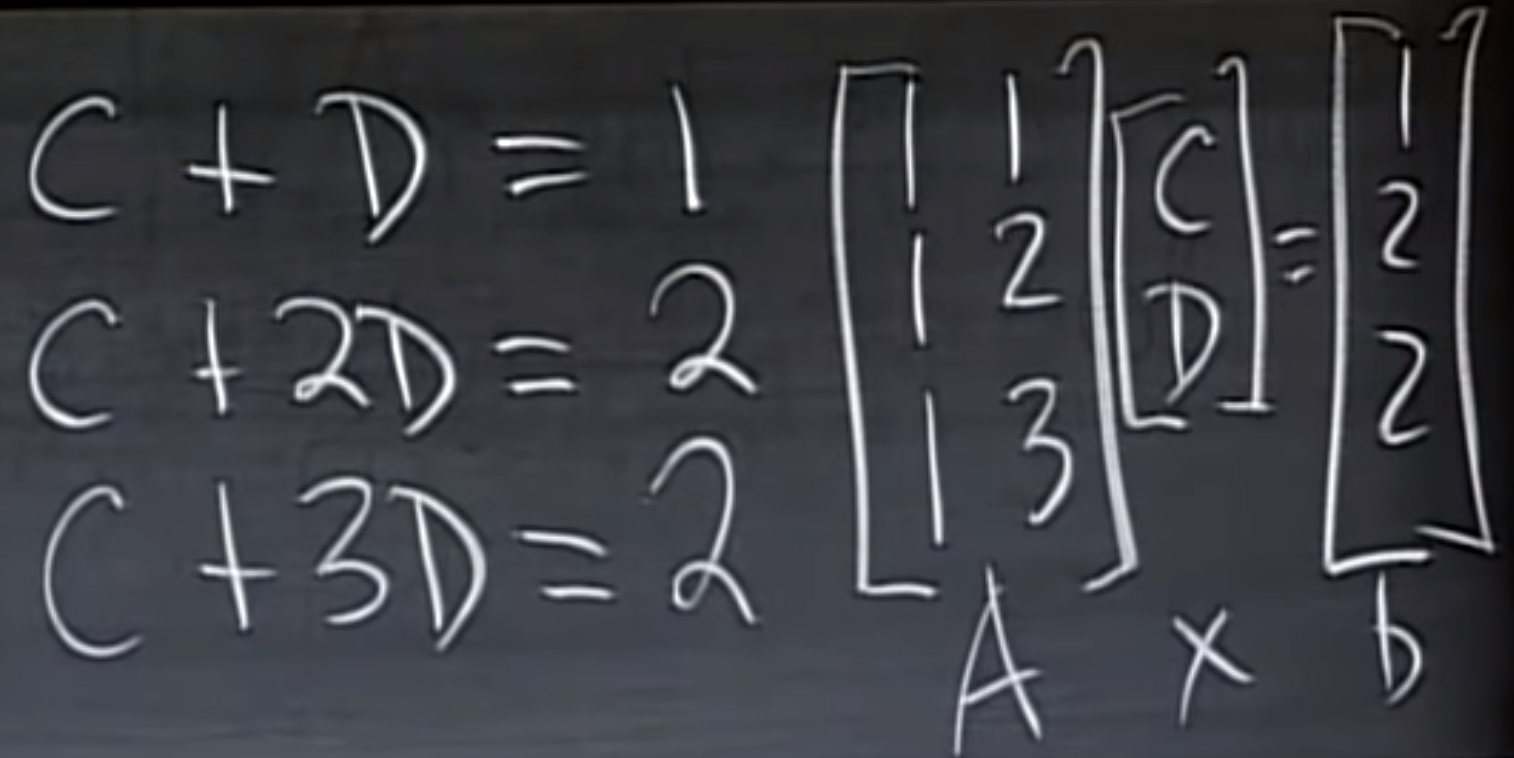 C + D = 1
C + 2D = 2
C + 3D = 2
[1 1
1 2
1 3] [C
D] = [1
2
2]
A x b